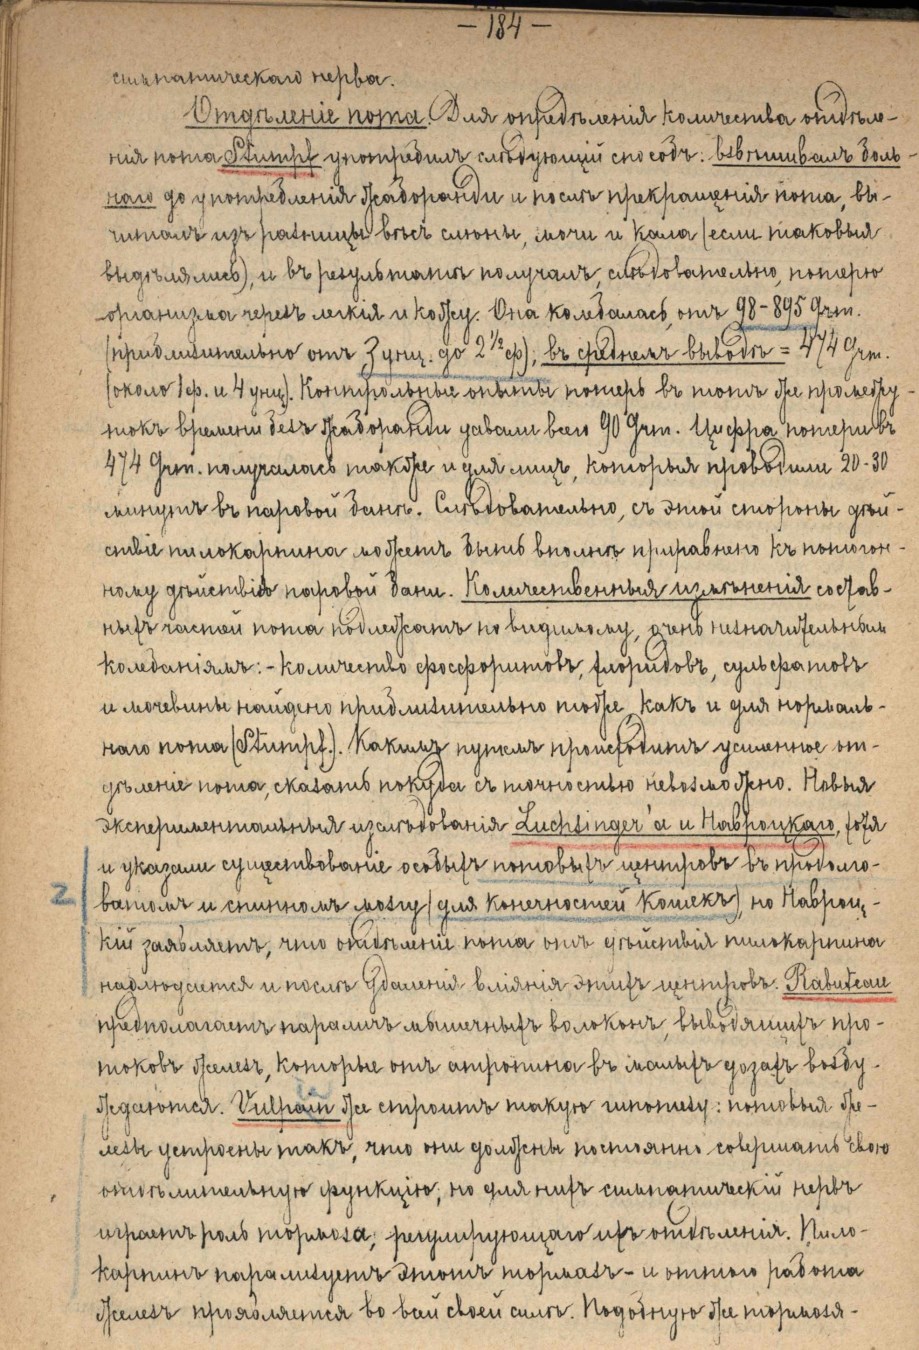 — 184 —
симпатическаго нерва.
Отдѣленіе пота. Для опредѣленія количества отдѣле-
нія пота Stumpf употребилъ слѣдующій способъ: взвѣшивалъ боль-
наго до употребленія жаборанди и послѣ прекращенія пота, вы-
читалъ изъ разницы вѣсъ слюны, мочи и кала (если таковыя
выдѣлялись), и въ результатѣ получалъ, слѣдовательно, потерю
организма черезъ легкія и кожу. Она колебалась отъ 98-895 Grm.
(приблизительно отъ 3 унц. до 2½ ф); въ среднемъ выводѣ = 474 Grm.
(около 1 ф. и 4 унц). Контрольные опыты потерь въ тотъ же промежу-
токъ времени безъ жаборанди давали всего 90 Grm. Цифра потери въ
474 Grm. получалась также и для лицъ, которыя проводили 20-30
минутъ въ паровой банѣ. Слѣдовательно, съ этой стороны дѣй-
ствіе пилокарпина можетъ быть вполнѣ приравнено къ потогон-
ному дѣйствію паровой бани. Количественныя измѣненія состав-
ныхъ частей пота подлежатъ по видимому, очень незначительнымъ
колебаніямъ: - количество фосфоритовъ, хлоридовъ, сульфатовъ
и мочевины найдено приблизительно тоже, какъ и для нормаль-
наго пота (Stumpf.). Какимъ путемъ происходитъ усиленное от-
дѣленіе пота, сказать покуда съ точностью невозможно. Новыя
экспериментальныя изслѣдованія Luchsinger'a и Навроцкаго, хотя
и указали существованіе особыхъ потовыхъ центровъ въ продолго-
ватомъ и спинномъ мозгу (для конечностей кошекъ), но Навроц-
кій заявляетъ, что отдѣленіе пота отъ дѣйствія пилокарпина
наблюдается и послѣ удаленія вліянія этихъ центровъ. Rabuteau
предполагаетъ параличъ мышечныхъ волоконъ, выводящихъ про-
токовъ железъ, которые отъ атропина въ малыхъ дозахъ возбу-
ждаются. Vulpain же строитъ такую гипотезу: потовыя же-
лезы устроены такъ, что они должны постоянно совершать свою
отдѣлительную функцію, но для нихъ симпатическій нервъ
играетъ роль тормоза, регулирующаго ихъ отдѣленія. Пило-
карпинъ парализуетъ этотъ тормазъ - и оттого работа
железъ проявляется во всей своей силѣ. Подобную же тормозя-